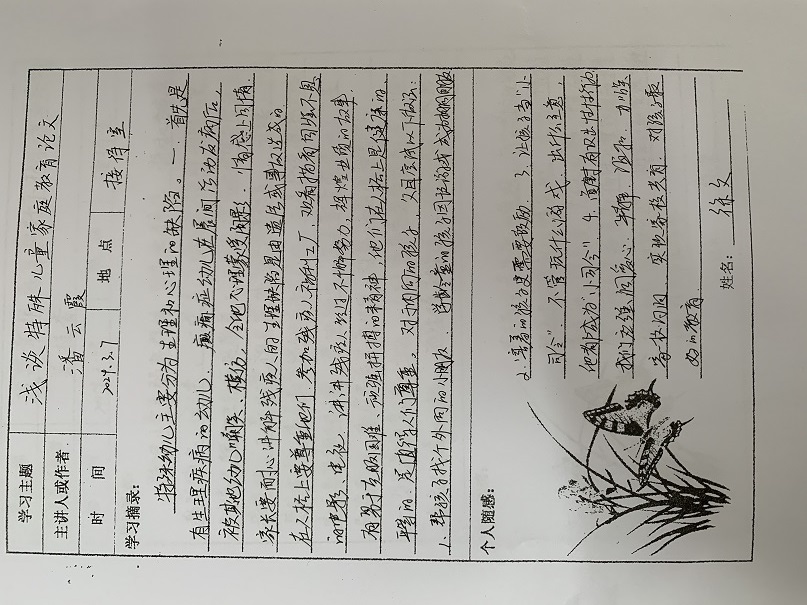 学习主题 浅谈特殊儿童家庭教育论文
主讲人或作者 潘云霞
时 间 2024.3.7 地 点 接待室
学习摘录：
特殊幼儿主要分为生理和心理的缺陷。一.首先是
有生理疾病的幼儿.癫痫症幼儿在晨间活动发病后，
被其他幼儿嘲笑、模仿，令他心理蒙受阴影.情感上同情.
家长要耐心讲解残疾人的生理缺陷是由遗传或事故造成的
在人格上要尊重他们.参加残疾人福利工厂，观看描有困难不具
的电影、电视.讲讲残疾人经过不懈努力，辉煌业质的故事.
有勇于克服困难、顽强拼搏的精神，他们在人格上是健康的.
平等的.是值得人们尊重。对于内向的孩子，父母应试以下做法：
1、帮孩子找个外向的小朋友.学龄童的孩子因
个人随感：
2.害羞的孩子更需要鼓励.3.让孩子当“小
司令”.不管玩什么游戏，出什么主意，
他都成为“小司令”.4.面对有攻击性行为
我们应强同爱心
家校共育.对孩子最
好的教育.
姓名：徐文